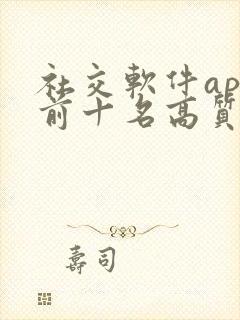 社交軟件ap
前十名高質
壽司